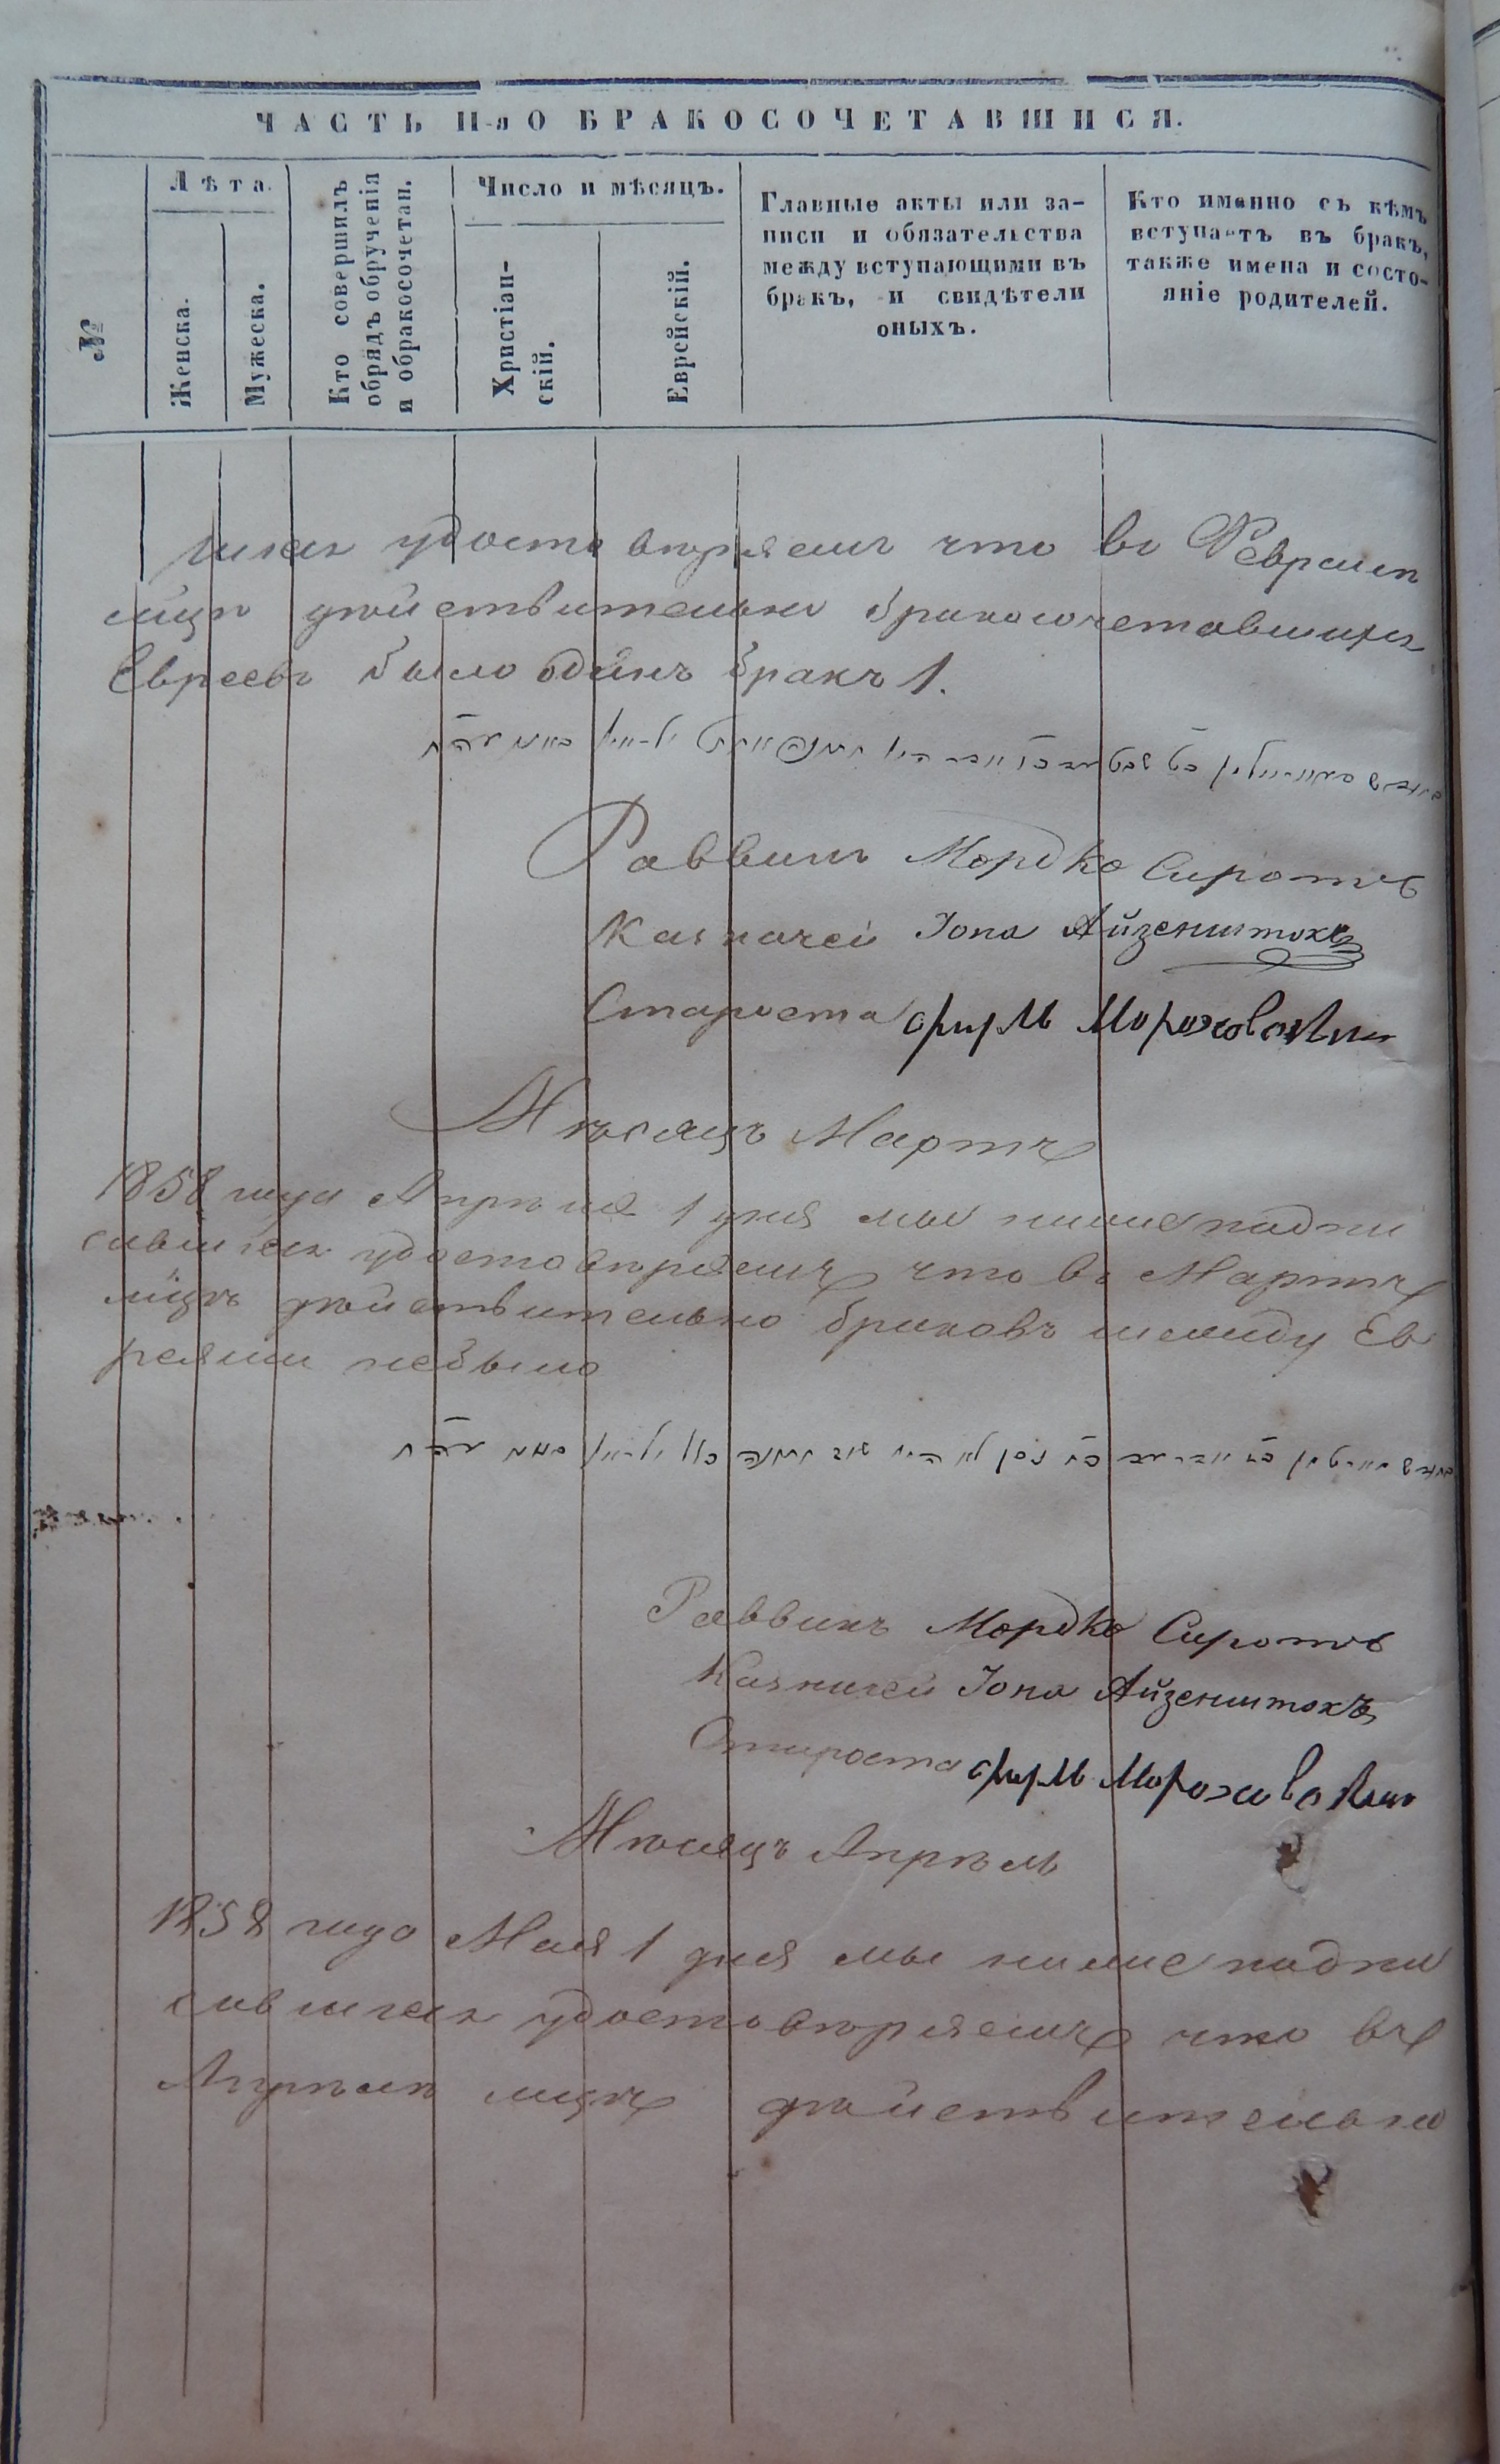 ЧАСТЬ II-я О БРАКОСОЧЕТАВШИСЯ.
№
Лѣта.
Женска.
Мужеска.
Кто совершилъ
обрядъ обрученія
и обракосочетан.
Число и мѣсяцъ.
Христіан-
скій.
Еврейскій.
Главные акты или за-
писи и обязательства
между вступающими въ
бракъ, и свидѣтели
оныхъ.
Кто именно съ кѣмъ
вступаетъ въ бракъ,
также имена и состо-
яніе родителей.
шіеся удостовѣряемъ что въ Февралѣ
мцѣ дѣйствительно бракосочетавшихся
Евреевъ было одинъ бракъ 1.
Раввинъ Мордко Сирота
Казначей Іона Айзенштокъ
Староста
Мѣсяцъ Мартъ
1858 года Апрѣля 1 дня мы нижеподпи
савшіеся удостовѣряемъ что въ Мартѣ
мцѣ дѣйствительно браковъ между Ев
реями небыло
Раввинъ Мордко Сирота
Казначей Іона Айзенштокъ
Староста
Мѣсяцъ Апрѣль
1858 года Мая 1 дня мы нижеподпи
савшіеся удостовѣряемъ что въ
Апрѣлѣ мцѣ дѣйствительно